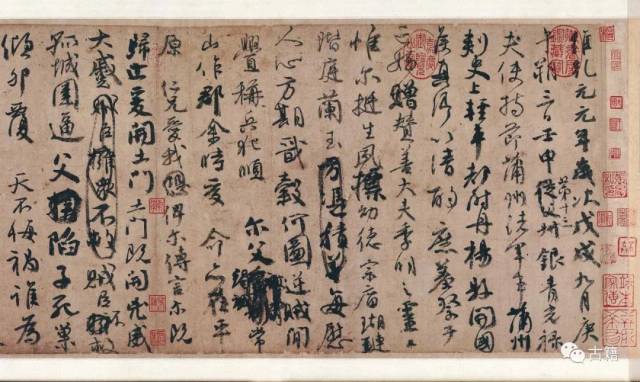 維乾元元年歲次戊戌九月庚
午朔三日壬申第十三叔銀青光祿
夫使持節蒲州諸軍事蒲州
刺史上輕車都尉丹楊縣開國
侯真卿以清酌庶羞祭于
亡姪贈贊善大夫季明之靈曰
惟爾挺生夙標幼德宗廟瑚璉
階庭蘭玉方憑積善每慰
人心方期戩穀何圖逆賊閒
釁稱兵犯順
爾父竭誠常
山作郡余時受命亦在平
原仁兄愛我俾爾傳言爾既
歸止爰開土門土門既開兇威
大蹙賊臣不救
孤城圍逼父陷子死巢
傾卵覆天不悔禍誰為
古籍